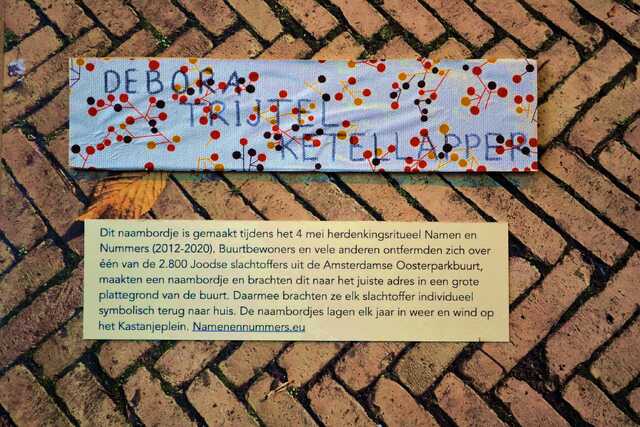 DEBORA
TRIJTEL
KETELLAPPER
Dit naambordje is gemaakt tijdens het 4 mei herdenkingsritueel Namen en
Nummers (2012-2020). Buurtbewoners en vele anderen ontfermden zich over
één van de 2.800 Joodse slachtoffers uit de Amsterdamse Oosterparkbuurt,
maakten een naambordje en brachten dit naar het juiste adres in een grote
plattegrond van de buurt. Daarmee brachten ze elk slachtoffer individueel
symbolisch terug naar huis. De naambordjes lagen elk jaar in weer en wind op
het Kastanjeplein. Namenennummers.eu